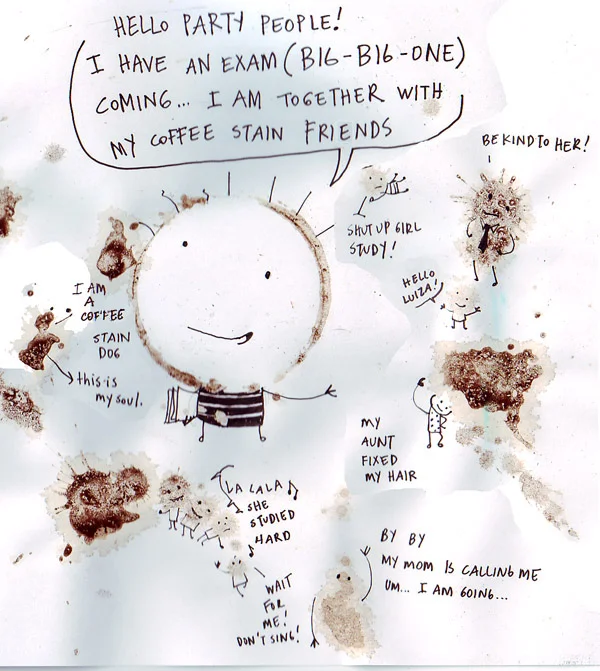 HELLO PARTY PEOPLE!
I HAVE AN EXAM (BIG-BIG-ONE)
COMING... I AM TOGETHER WITH
MY COFFEE STAIN FRIENDS
BE KIND TO HER!
SHUT UP GIRL
STUDY!
HELLO
LUIZA!
I AM
A
COFFEE
STAIN
DOG
this is
my soul.
MY
AUNT
FIXED
MY HAIR
LA LA LA
SHE
STUDIED
HARD
WAIT
FOR
ME!
DON'T SING!
BY BY
MY MOM IS CALLING ME
UM... I AM GOING...